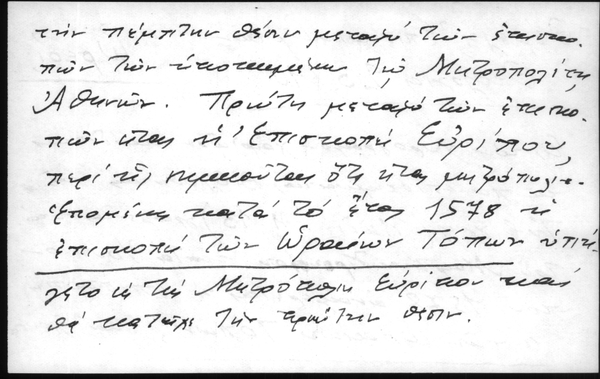 τήν πέμπτην θέσιν μεταξύ τῶν ἐπισκο-
πῶν τῶν ὑποκειμένων τῷ Μητροπολίτῃ
Ἀθηνῶν. Πρώτη μεταξύ τῶν ἐπισκο-
πῶν ἦτο ἡ Ἐπισκοπή Εὐρίπου,
περί ἧς σημειοῦται ὅτι ἦτο μητρόπολις.
Ἑπομένως κατά τό ἔτος 1578 ἡ
ἐπισκοπή τῶν Ὡραίων Τόπων ὑπή-
γετο εἰς τήν Μητρόπολιν Εὐρίπου καί
θά κατεῖχε τήν πρώτην θέσιν.